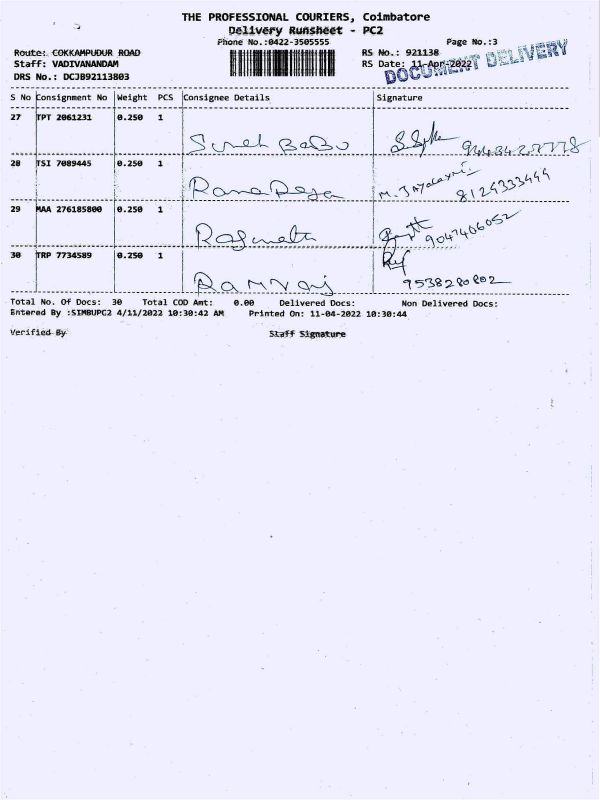 THE PROFESSIONAL COURIERS, Coimbatore
Delivery Runsheet - PC2
Phone No.:0422-3505555 Page No.:3
Route: COKKAMPUDUR ROAD RS No.: 921138
Staff: VADIVANANDAM RS Date: 11-Apr-2022
DOCUMENT DELIVERY
DRS No.: DCJB92113803
S No Consignment No Weight PCS Consignee Details Signature
27 TPT 2061231 0.250 1
Suresh Babu
28 TSI 7089445 0.250 1
Rama Raja M. Jayalaxmi 8124333444
29 MAA 276185800 0.250 1
9047406052
30 TRP 7734589 0.250 1
9538280802
Total No. Of Docs: 30 Total COD Amt: 0.00 Delivered Docs: Non Delivered Docs:
Entered By :SIMBUPC2 4/11/2022 10:30:42 AM Printed On: 11-04-2022 10:30:44
Verified By Staff Signature